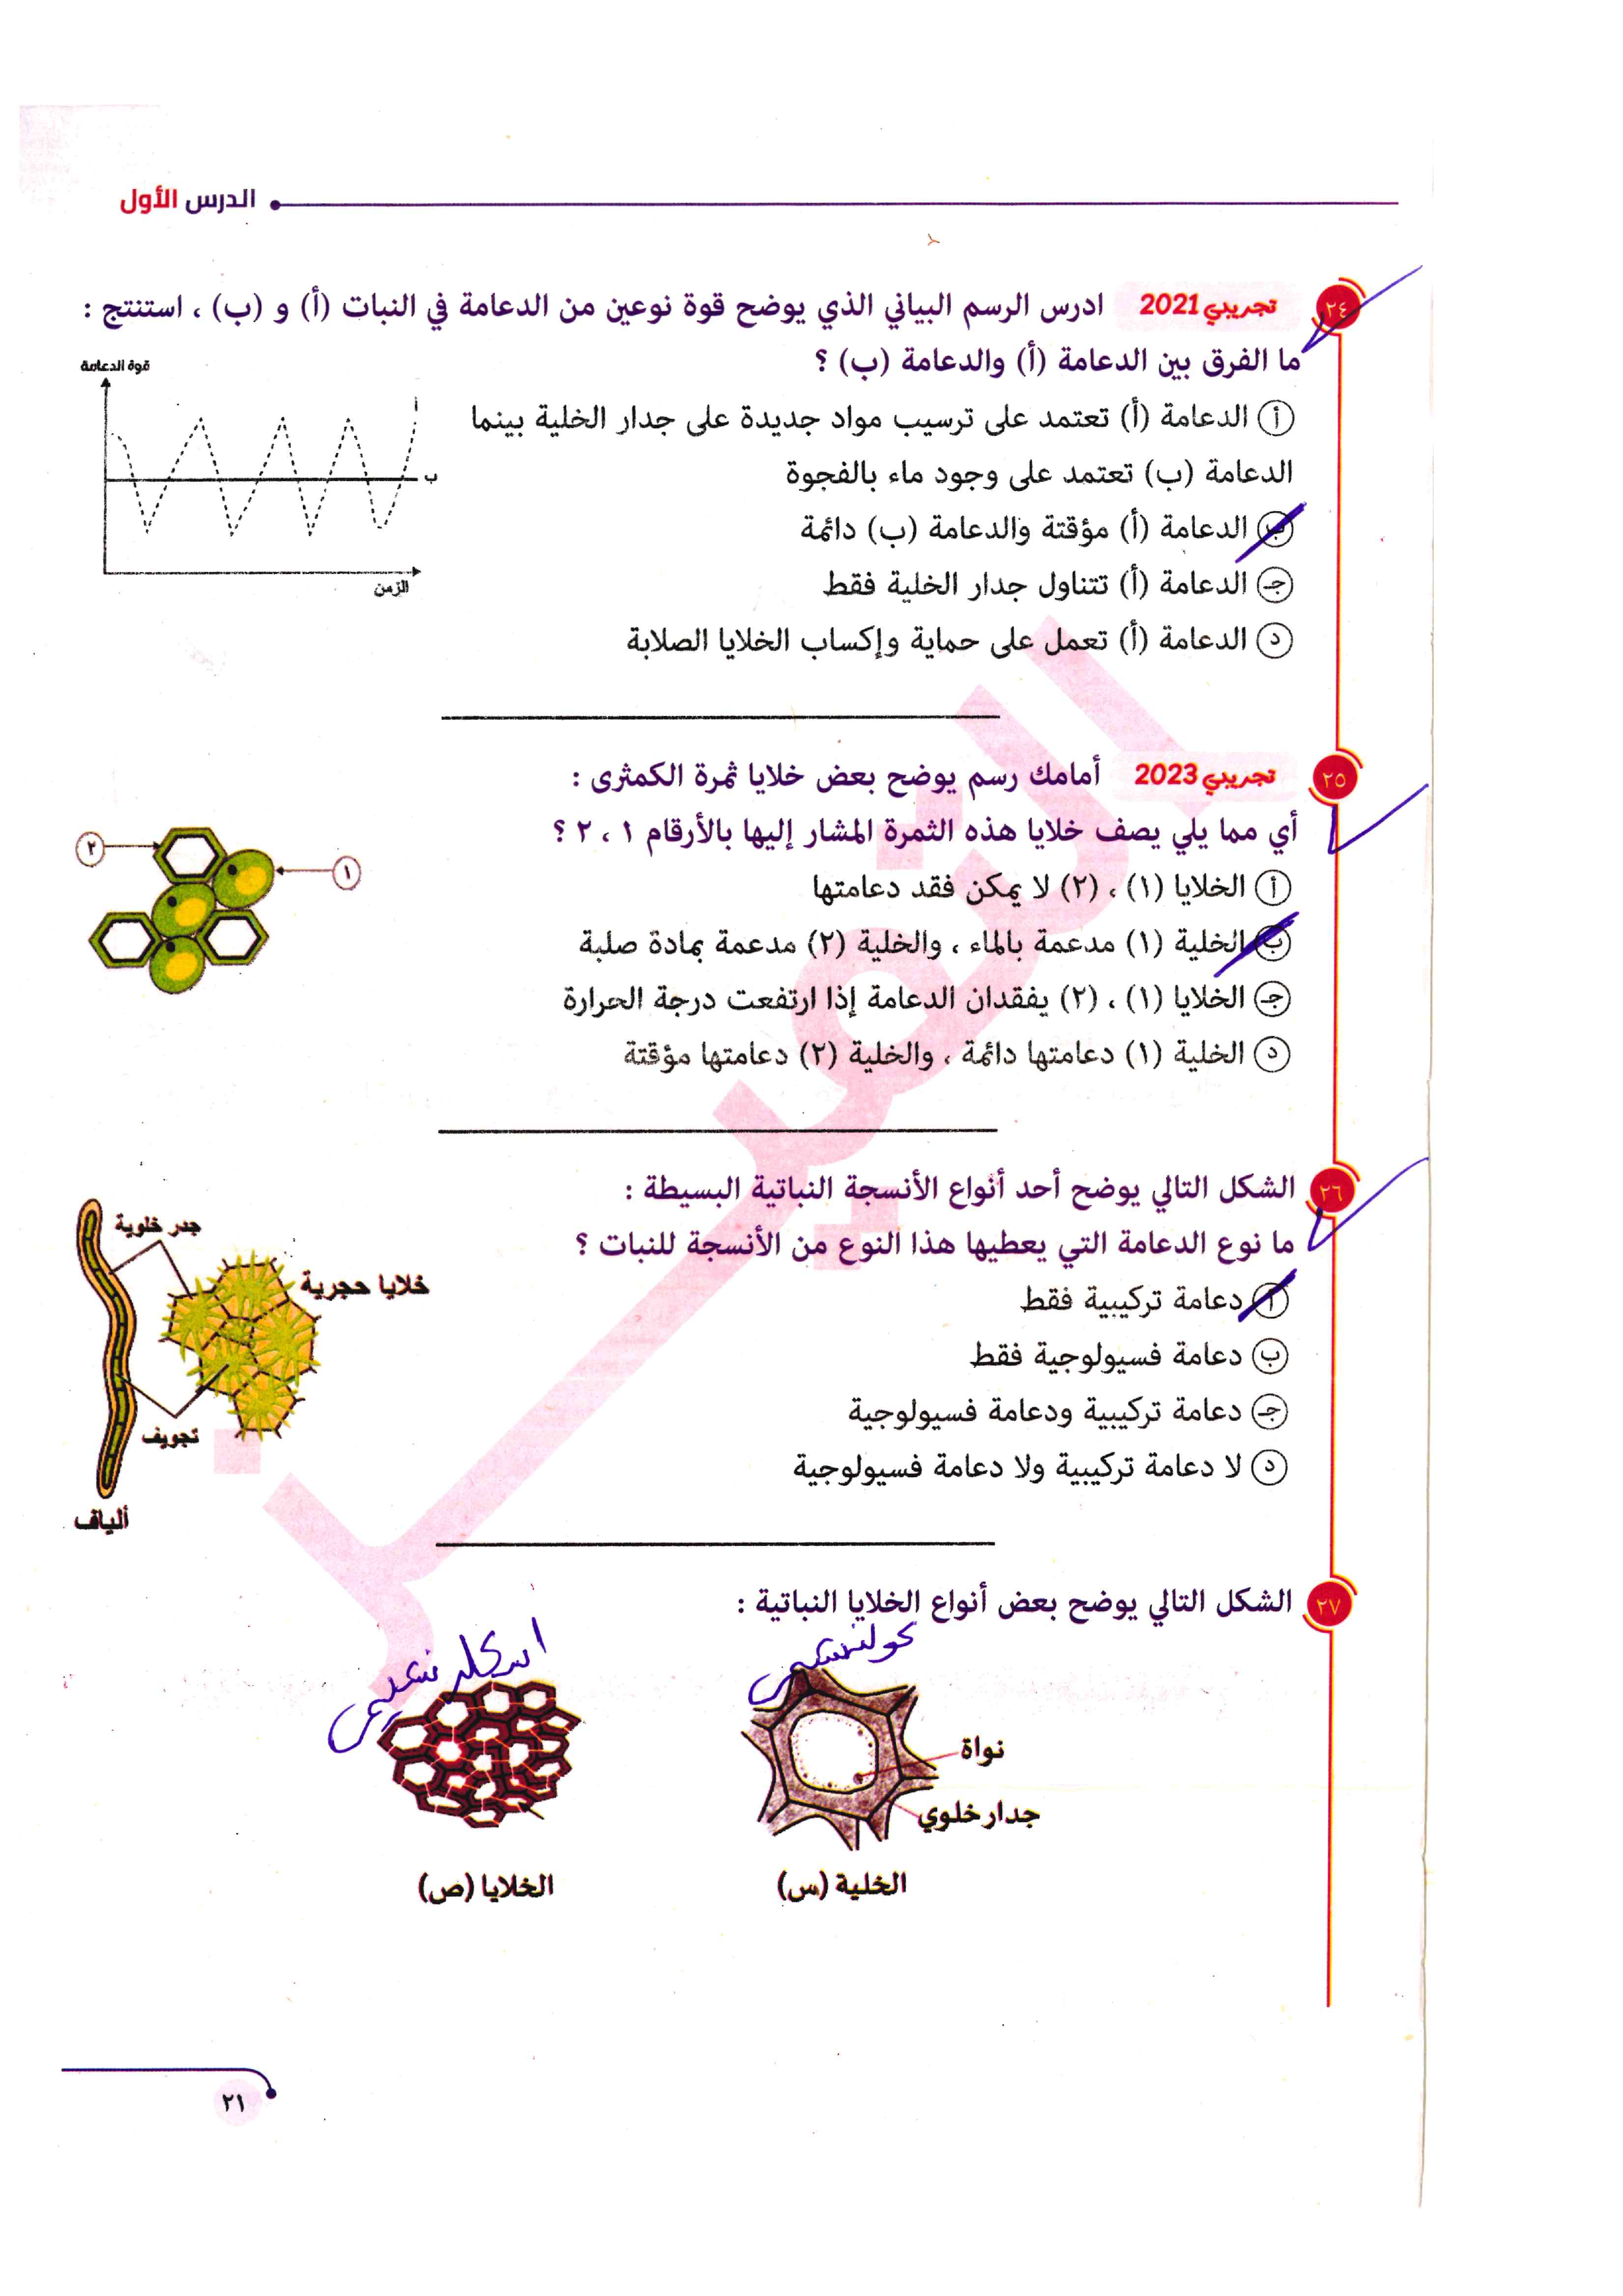 الدرس الأول
٢٤ تجريبي 2021 ادرس الرسم البياني الذي يوضح قوة نوعين من الدعامة في النبات (أ) و (ب) ، استنتج :
ما الفرق بين الدعامة (أ) والدعامة (ب) ؟
قوة الدعامة
أ
ب
الزمن
أ الدعامة (أ) تعتمد على ترسيب مواد جديدة على جدار الخلية بينما
الدعامة (ب) تعتمد على وجود ماء بالفجوة
ب الدعامة (أ) مؤقتة والدعامة (ب) دائمة
جـ الدعامة (أ) تتناول جدار الخلية فقط
د الدعامة (أ) تعمل على حماية وإكساب الخلايا الصلابة
٢٥ تجريبي 2023 أمامك رسم يوضح بعض خلايا ثمرة الكمثرى :
أي مما يلي يصف خلايا هذه الثمرة المشار إليها بالأرقام ١ ، ٢ ؟
٢
١
أ الخلايا (١) ، (٢) لا يمكن فقد دعامتها
ب الخلية (١) مدعمة بالماء ، والخلية (٢) مدعمة بمادة صلبة
جـ الخلايا (١) ، (٢) يفقدان الدعامة إذا ارتفعت درجة الحرارة
د الخلية (١) دعامتها دائمة ، والخلية (٢) دعامتها مؤقتة
٢٦ الشكل التالي يوضح أحد أنواع الأنسجة النباتية البسيطة :
ما نوع الدعامة التي يعطيها هذا النوع من الأنسجة للنبات ؟
جدر خلوية
خلايا حجرية
تجويف
ألياف
أ دعامة تركيبية فقط
ب دعامة فسيولوجية فقط
جـ دعامة تركيبية ودعامة فسيولوجية
د لا دعامة تركيبية ولا دعامة فسيولوجية
٢٧ الشكل التالي يوضح بعض أنواع الخلايا النباتية :
كولنشيمي
اسكلرنشيمي
نواة
جدار خلوي
الخلية (س)
الخلايا (ص)
٢١